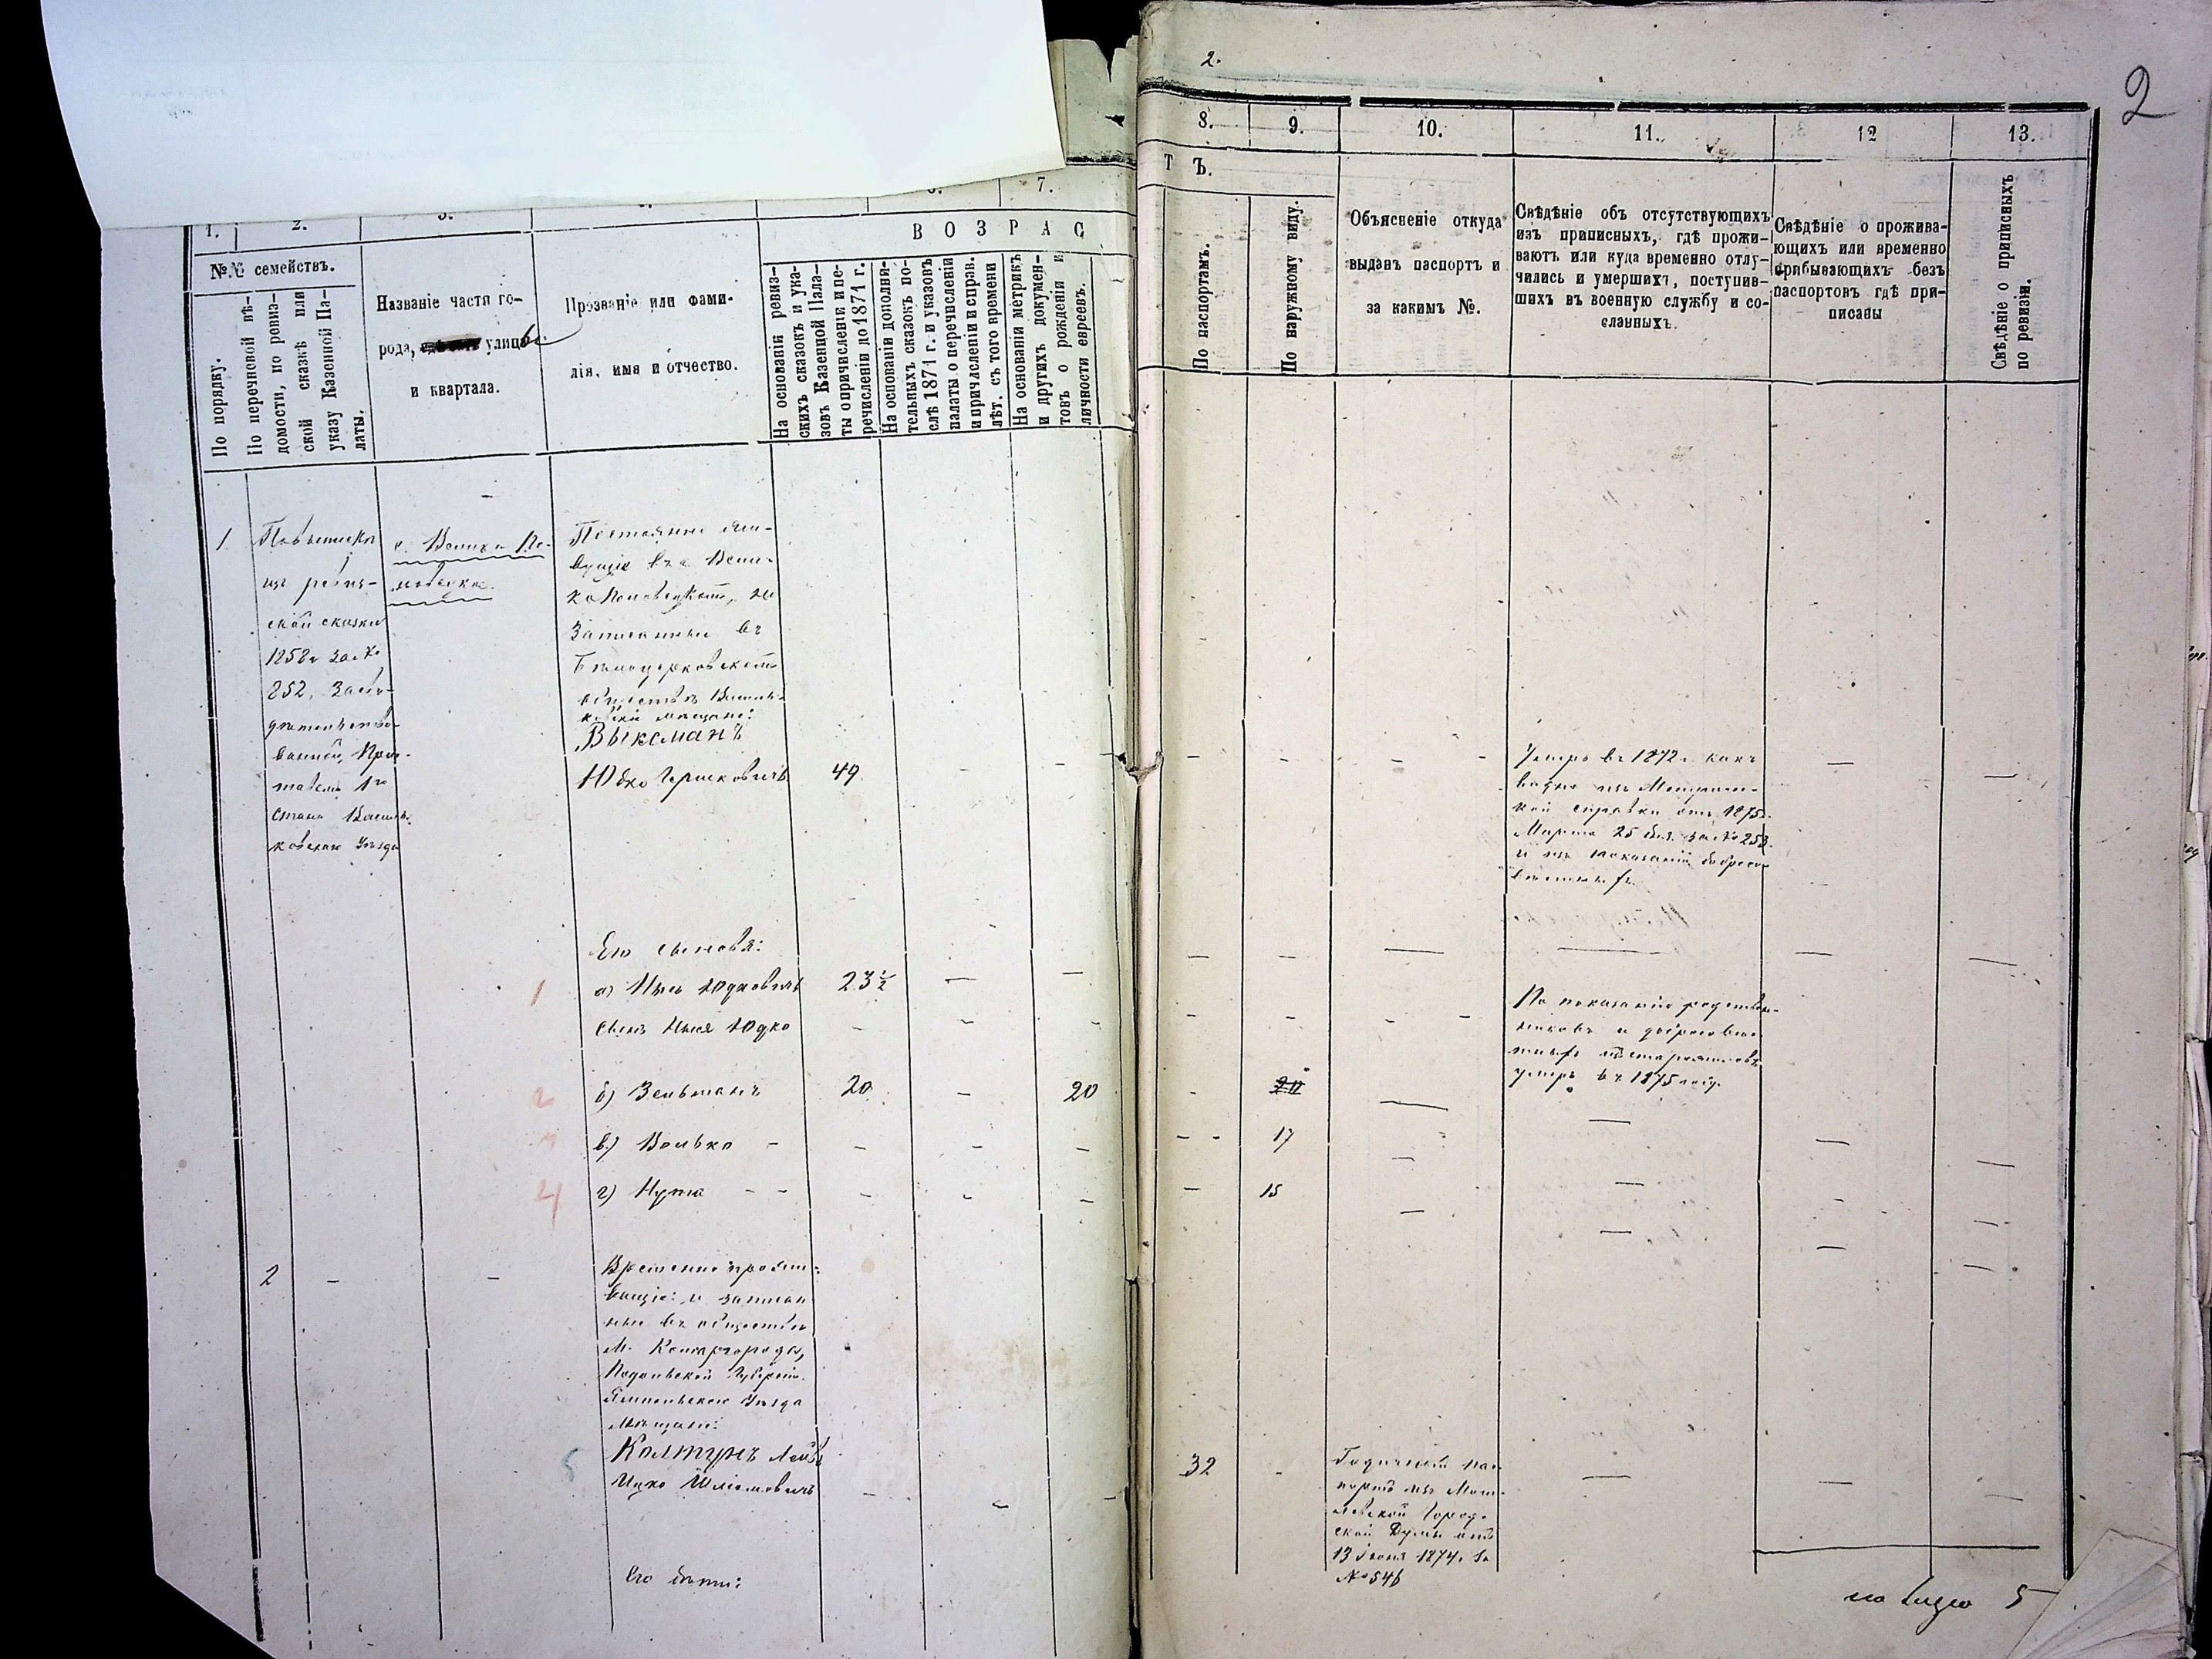 2.
2
7.
8.
9.
10.
11.
12
13.
1.
2.
3.
ВОЗРАС
ТЪ.
№№ семействъ.
По порядку.
По перечневой вѣ-
домости, по ревиз-
ской сказкѣ или
указу Казенной Па-
латы.
Названіе части го-
рода, улицы
и квартала.
Прозваніе или фами-
лія, имя и отчество.
На основаніи ревиз-
скихъ сказокъ и ука-
зовъ Казенной Пала-
ты о причисленіи и пе-
речисленіи до 1871 г.
На основаніи дополни-
тельныхъ сказокъ по-
слѣ 1871 г. и указовъ
палаты о перечисленіи
и причисленіи и справ.
лѣт. съ того времени
На основаніи метрикъ
и другихъ докумен-
товъ о рожденіи и
личности евреевъ.
По паспортамъ.
По наружному виду.
Объясненіе откуда
выданъ паспортъ и
за какимъ №.
Свѣдѣніе объ отсутствующихъ
изъ приписныхъ, гдѣ прожи-
ваютъ или куда временно отлу-
чились и умершихъ, поступив-
шихъ въ военную службу и со-
сланныхъ.
Свѣдѣніе о прожива-
ющихъ или временно
прибывающихъ безъ
паспортовъ гдѣ при-
писаны
Свѣдѣніе о приписныхъ
по ревизіи.
1
изъ ревиз-
ской сказки
1858 г за №
852, засви-
дѣтельство-
ванной, Прис-
тавомъ 1го
стана Василь-
ковскаго Уѣзда
с. Велико По-
ловецкое.
Постоянно жи-
вущіе въ с Вели-
ко Половецкомъ, но
записанные въ
Бѣлоцерковскомъ
обществѣ Василь-
ковскіе мѣщане:
Выксманъ
Юдко Гершковичъ
49
Умеръ въ 1872 г. какъ
видно изъ Метричес-
кой справки отъ 1875 г.
Марта 25 дня за № 253
и изъ показаній добросо-
вѣстныхъ.
Его сыновья:
1
а) Ицъ Юдковичъ
23 ½
сынъ Ицка Юдко
По показанію родствен-
никовъ и добросовѣс-
тныхъ
умеръ въ 1875 году.
2
б) Зельманъ
20
20
20
в) Волько
17
4
г) Нута
15
2
Временно прожи-
вающіе: и записан-
ные въ обществѣ
М. Комаргорода,
Подольской Губерніи
Ямпольскаго Уѣзда
мѣщане:
5
Колтунъ Лейб
Ицко Шліомовичъ
32
Годичный пас-
портъ изъ Моги-
левской Город-
ской Думы отъ
13 Іюня 1874 г. за
№ 546
Его дѣти:
на лицо 5